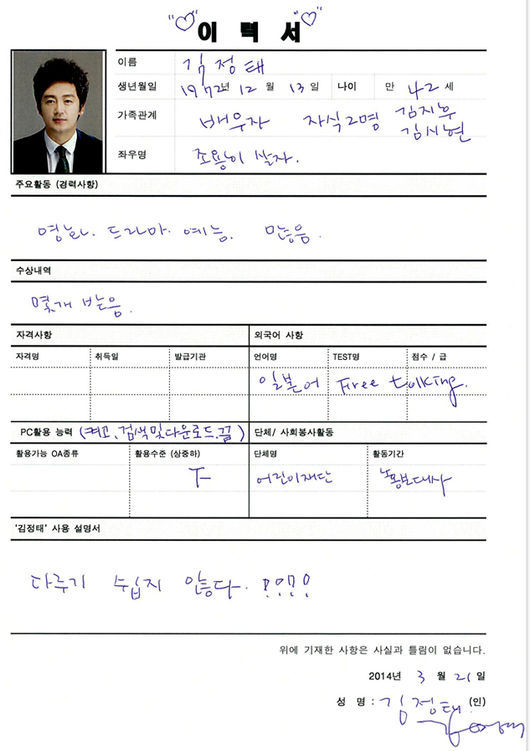 이 력 서
이름 김정태
생년월일 1972년 12 월 13 일 나이 만 42 세
가족관계 배우자 자식2명 김지후
김시현
좌우명 조용히 살자.
주요활동 (경력사항)
영화. 드라마. 예능. 많음.
수상내역
몇개 받음.
자격사항 외국어 사항
자격명 취득일 발급기관 언어명 TEST명 점수 / 급
일본어 Free talking.
PC활용 능력 (켜고, 검색및다운로드, 끔) 단체/ 사회봉사활동
활용가능 OA종류 활용수준 (상중하) 단체명 활동기간
下 어린이재단 홍보대사
'김정태' 사용 설명서
다루기 쉽지 않다. ?!?!?!
위에 기재한 사항은 사실과 틀림이 없습니다.
2014년 3 월 21 일
성 명 : 김정태 (인)